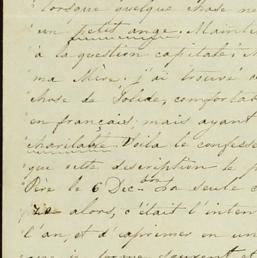 lorsque quelque chose ne
un petit ange. Mainte
à la question capitale; i
ma Mère; j'ai trouvé
chose de solide, comfortab
en français mais ayant
charitable. Voilà le confesse
que cette description le p
Père le 6 Dec. La seule c
alors, c'était l'inten
l'an, et d'exprimer en un